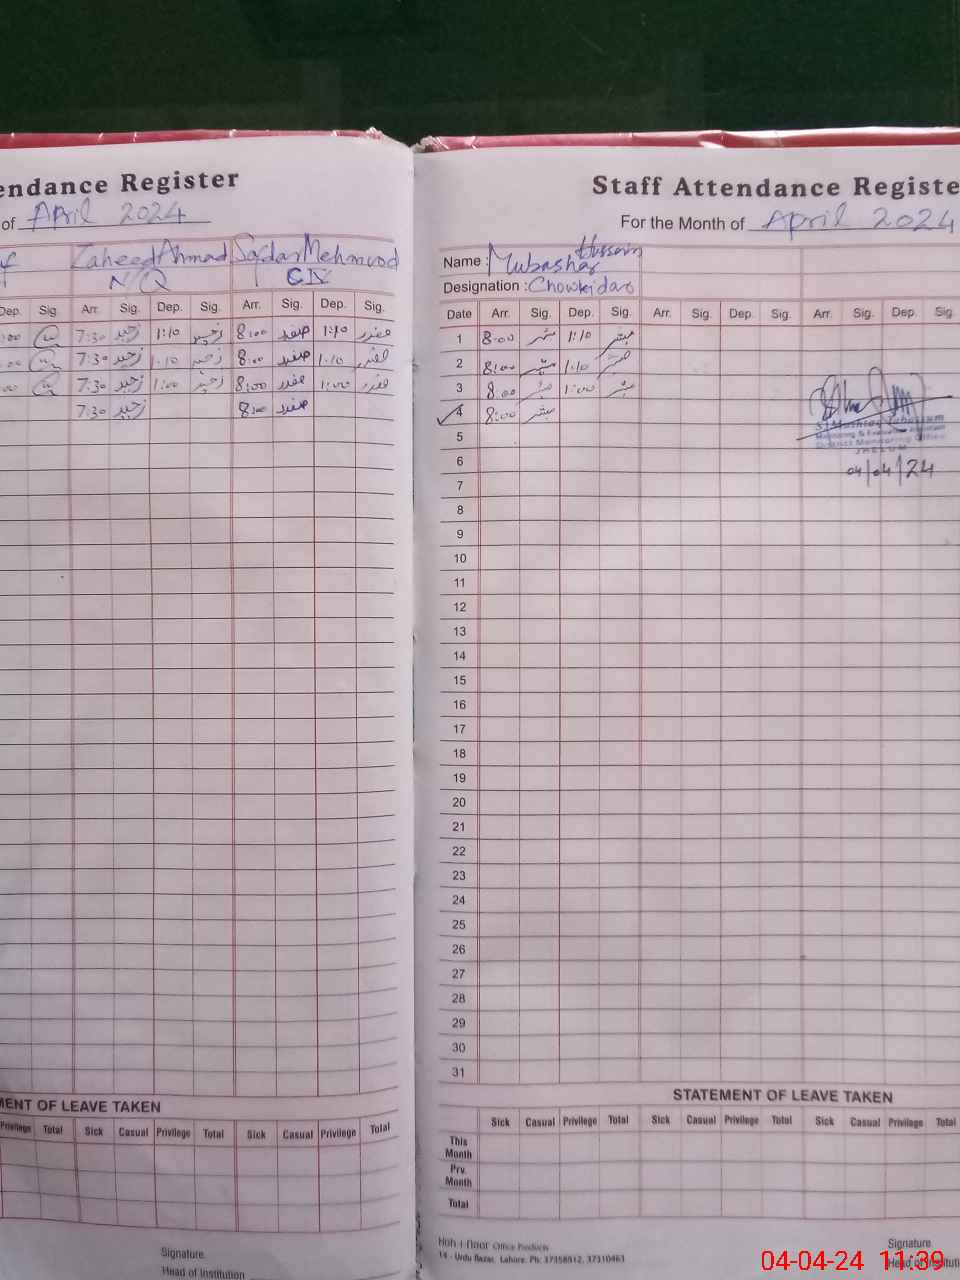 endance Register
of April 2024
Zaheed Ahmad Safdar Mehmood
N/Q CIV
Dep. Sig. Arr. Sig. Dep. Sig. Arr. Sig. Dep. Sig.
:00 7:30 زحید 1:10 زحید 8:00 صفدر 1:10 صفدر
:00 7:30 زحید 1:10 زحید 8:00 صفدر 1:10 صفدر
:00 7:30 زحید 1:00 زحید 8:00 صفدر 1:00 صفدر
7:30 زحید 8:00 صفدر
MENT OF LEAVE TAKEN
Privilege Total Sick Casual Privilege Total Sick Casual Privilege Total
Signature
Head of Institution
Staff Attendance Registe
For the Month of April 2024
Name : Mubashar Hussain
Designation : Chowkidar
Date Arr. Sig. Dep. Sig. Arr. Sig. Dep. Sig. Arr. Sig. Dep. Sig.
1 8:00 مبشر 1:10 مبشر
2 8:00 مبشر 1:10 مبشر
3 8:00 مبشر 1:00 مبشر
4 8:00 مبشر
5
6
7
8
9
10
11
12
13
14
15
16
17
18
19
20
21
22
23
24
25
26
27
28
29
30
31
Monitoring & Evaluation Assistant
District Monitoring Office
JHELUM
04/04/24
STATEMENT OF LEAVE TAKEN
Sick Casual Privilege Total Sick Casual Privilege Total Sick Casual Privilege Total
This Month
Prv. Month
Total
Koh-i-Noor Office Products
14 - Urdu Bazar, Lahore. Ph: 37358812, 37310463
Signature
Head of Instituti
04-04-24 11:39